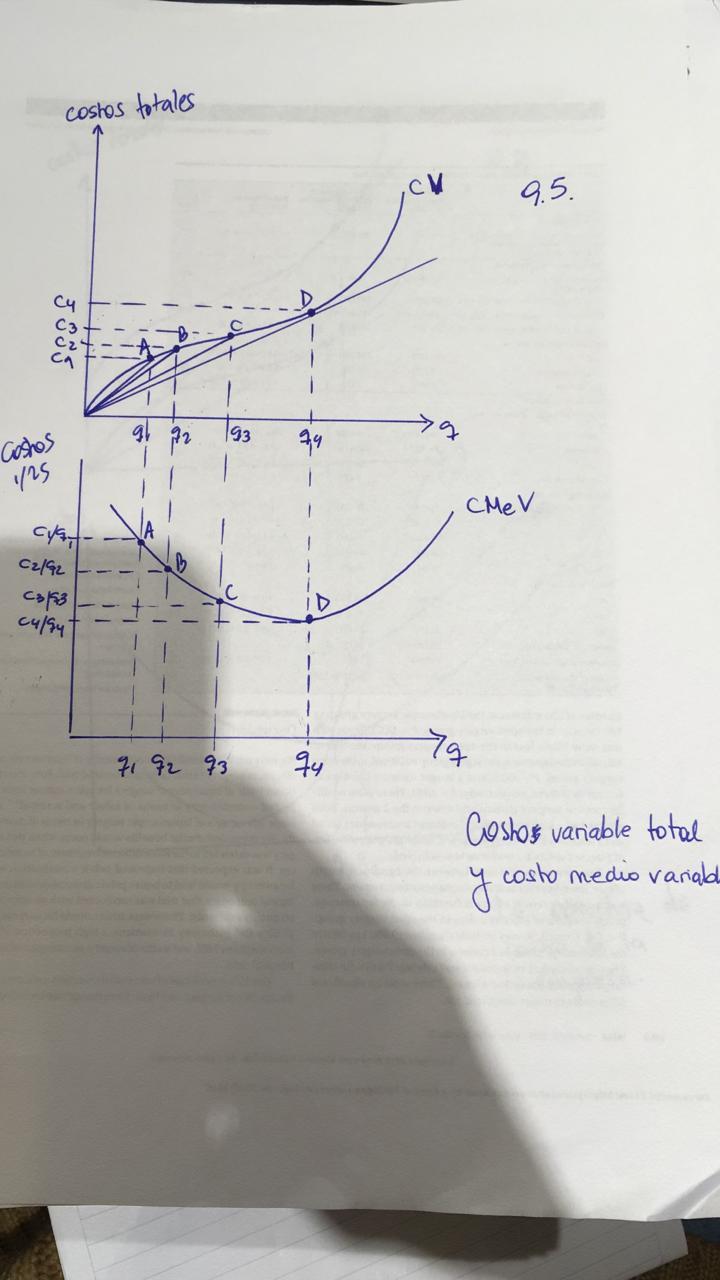 costos totales
CV
9.5.
C4
C3
C2
C1
A
B
C
D
q1 q2 q3 q4 q
Costos
CMeV
C1/q1
C2/q2
C3/q3
C4/q4
A
B
C
D
q1 q2 q3 q4 q
Costos variable total
y costo medio variabl